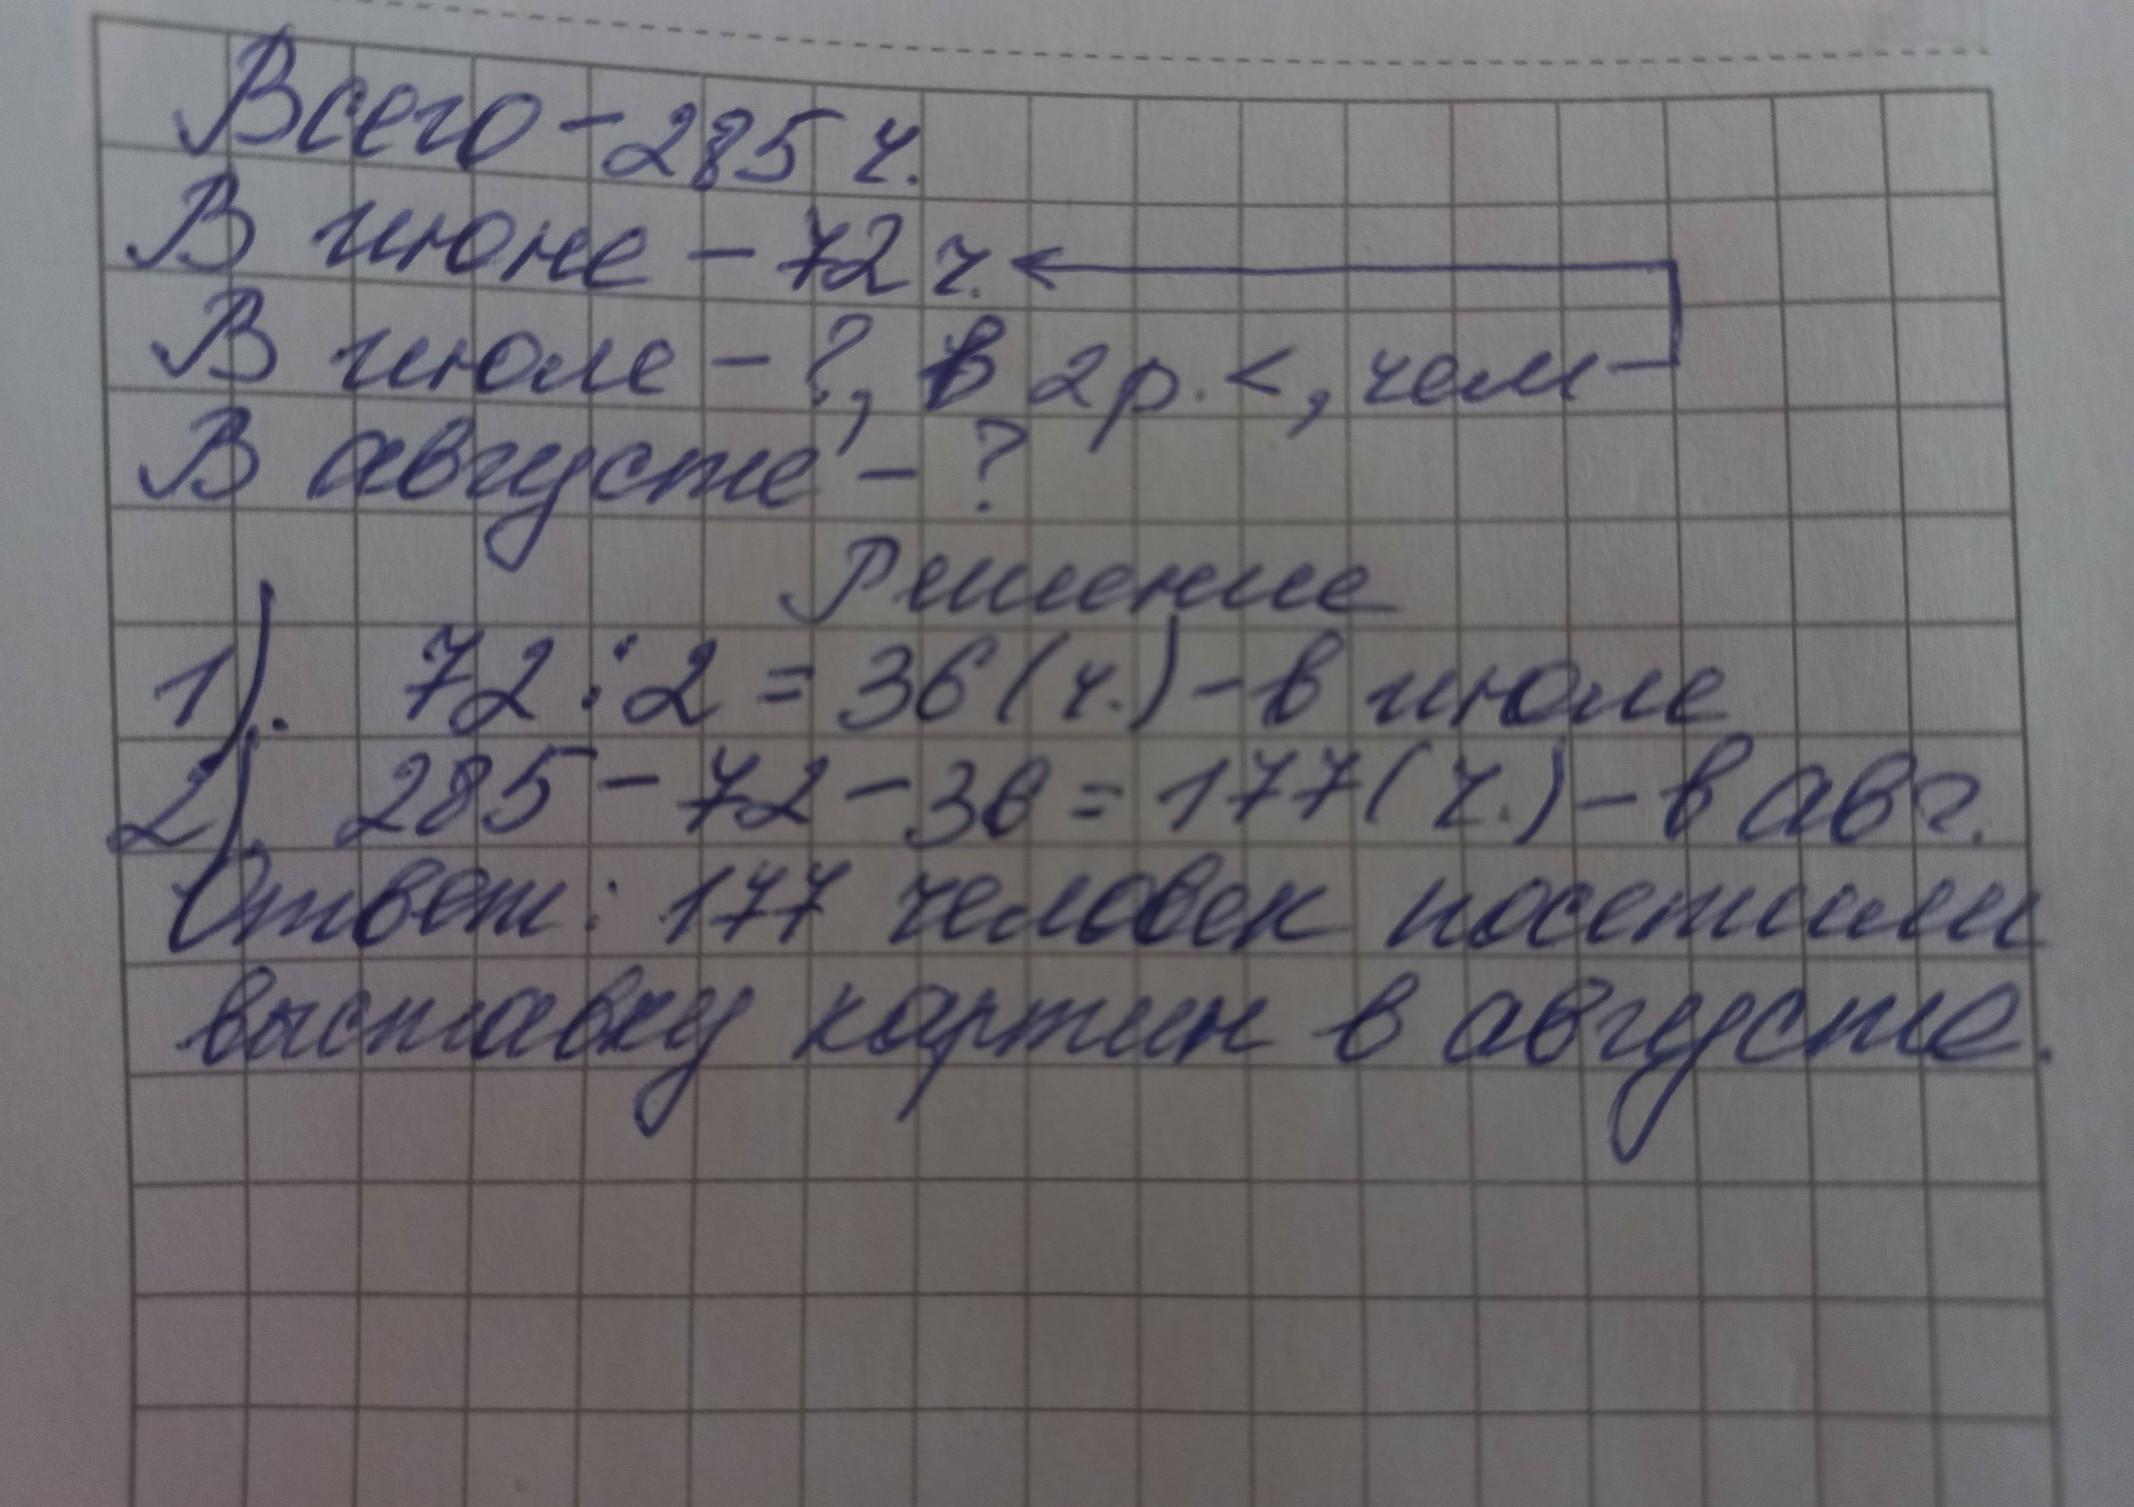 Всего - 285 ч.
В июне - 72 ч.
В июле - ?, в 2 р. <, чем
В августе - ?
Решение
1). 72 : 2 = 36 (ч.) - в июле
2). 285 - 72 - 36 = 177 (ч.) - в авг.
Ответ: 177 человек посетили
выставку картин в августе.